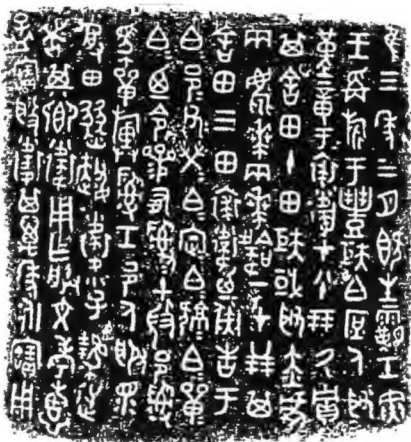 隹三年三月既生霸壬寅
王爯旂于豐矩白庶人取
堇章于裘衛才八十朋厥貯
其舍田十田矩或取赤虎
兩兩韐一才廿朋其
舍田三田裘衛乃彘告于
白邑父榮白定白白單
白乃令參有司司土微邑司
馬單旟司工邑人服眔
受田豳趞衛小子逆
者其鄉衛用乍朕文考惠
孟寶盤衛其萬年永寶用